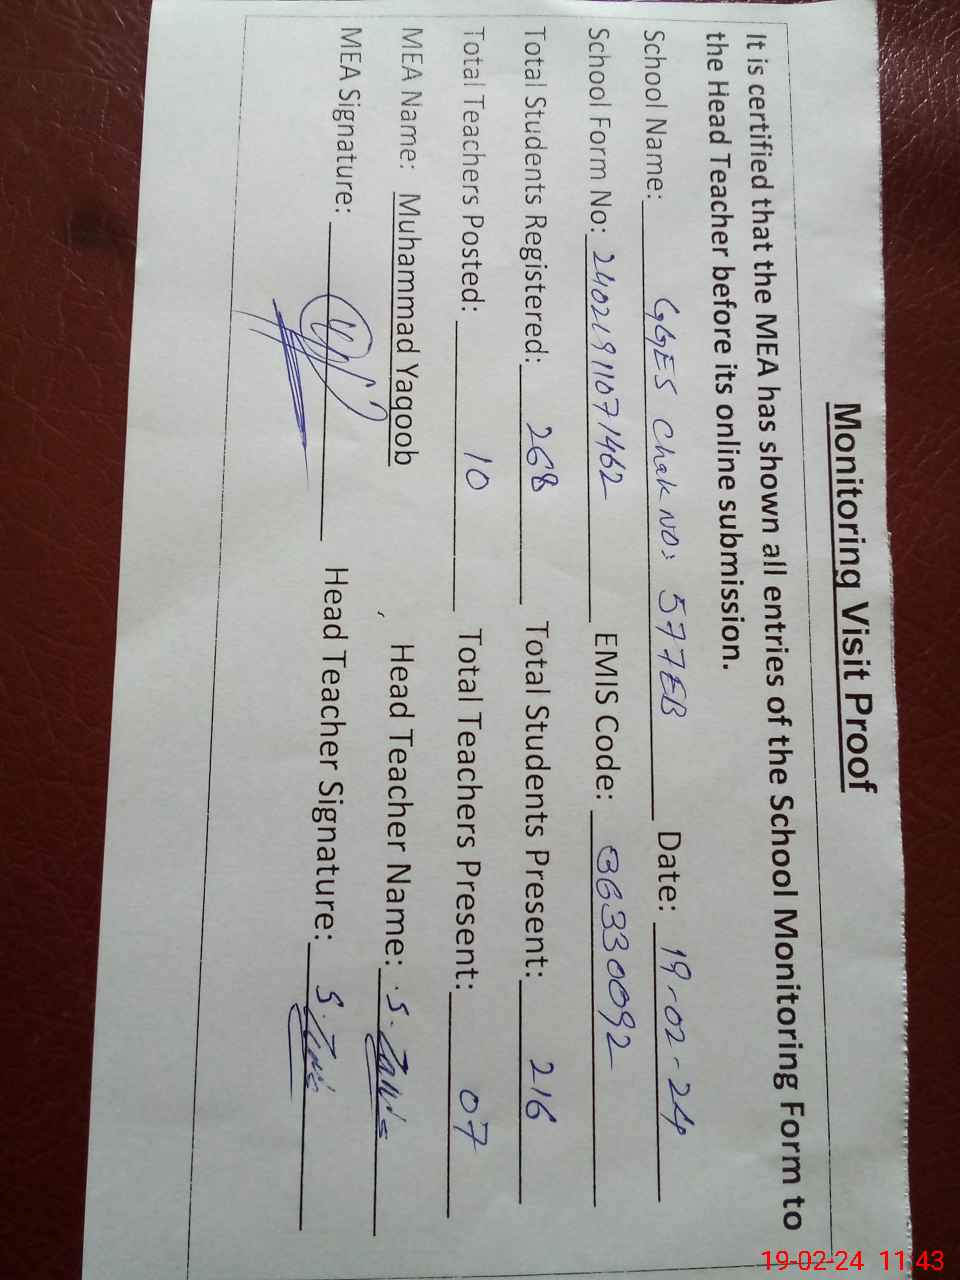 Monitoring Visit Proof
It is certified that the MEA has shown all entries of the School Monitoring Form to
the Head Teacher before its online submission.
School Name: GGES Chak NO: 577EB Date: 19-02-24
School Form No: 24021911071462 EMIS Code: 36330092
Total Students Registered: 268 Total Students Present: 216
Total Teachers Posted: 10 Total Teachers Present: 07
MEA Name: Muhammad Yaqoob Head Teacher Name: S.
MEA Signature: Head Teacher Signature: S.
19-02-24 11:43